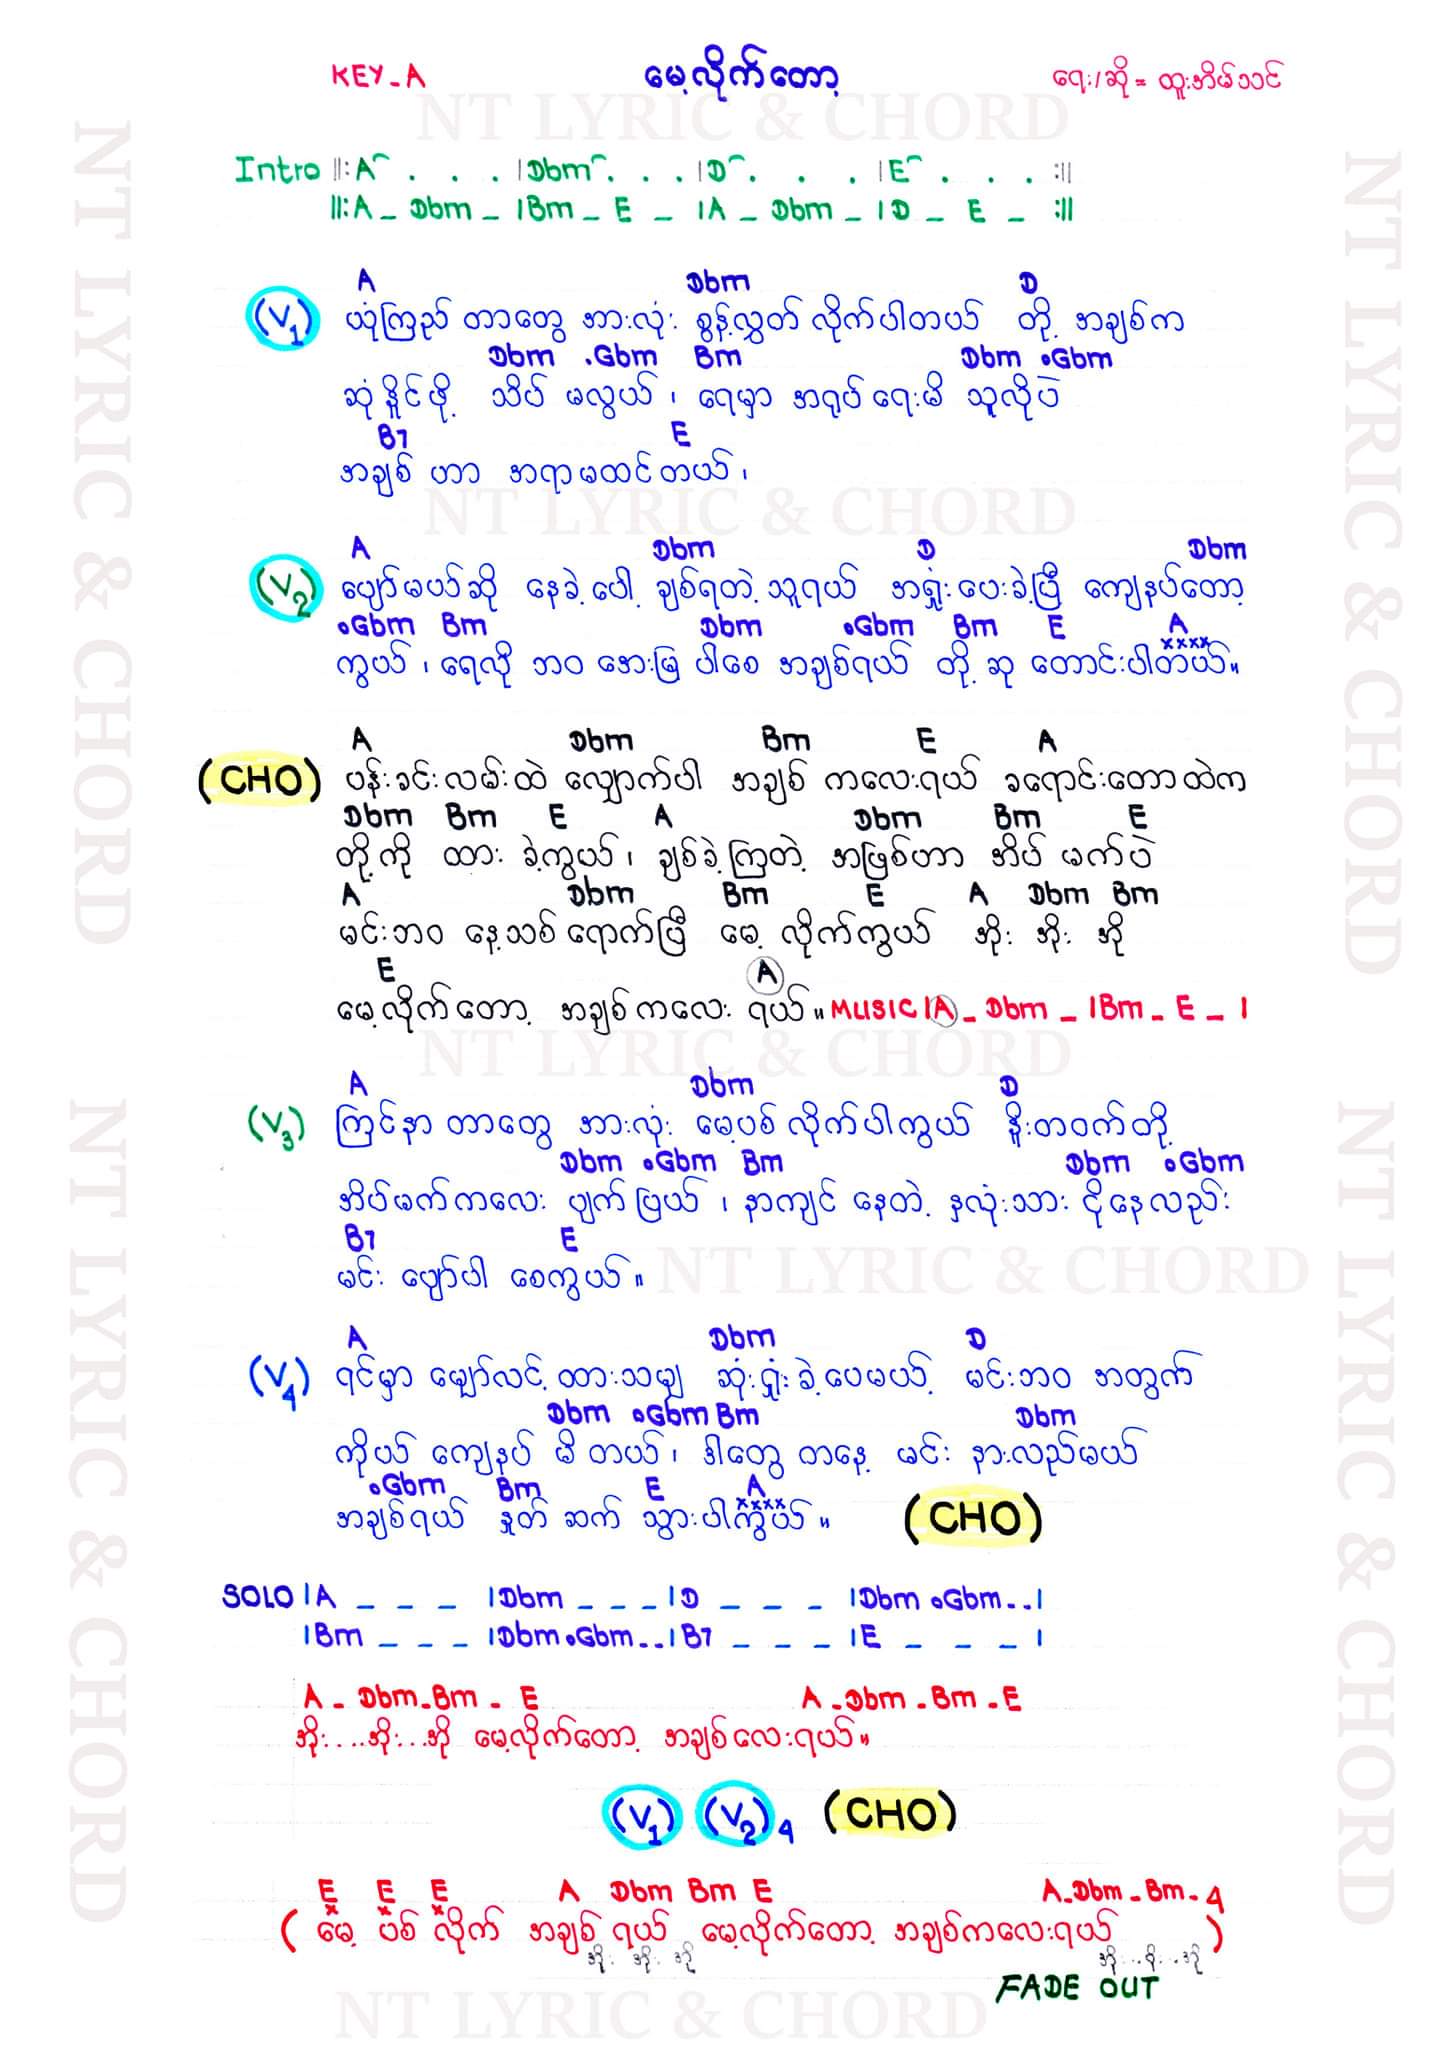 KEY-A မေ့လိုက်တော့ ရေး/ဆို = ထူးအိမ်သင်
NT LYRIC & CHORD
Intro ||:A . . . |Dbm . . . |D . . . |E . . . :||
||:A _ Dbm _ |Bm _ E _ |A _ Dbm _ |D _ E _ :||
A Dbm D
(V1) ယုံကြည် တာတွေ အားလုံး စွန့်လွှတ် လိုက်ပါတယ် တို့ အချစ်က
Dbm .Gbm Bm Dbm .Gbm
ဆုံနိူင်ဖို့ သိပ် မလွယ် ၊ ရေမှာ အရုပ်ရေးမိ သူလိုပဲ
B7 E
အချစ် ဟာ အရာမထင်တယ် ၊
NT LYRIC & CHORD
A Dbm D Dbm
(V2) ပျော်မယ်ဆို နေခဲ့ပေါ့ ချစ်ရတဲ့ သူရယ် အရှုံးပေးခဲ့ပြီ ကျေနပ်တော့
.Gbm Bm Dbm .Gbm Bm E A
xxxx
ကွယ် ၊ ရေလို ဘဝ အေးမြ ပါစေ အချစ်ရယ် တို့ ဆု တောင်းပါတယ်။
A Dbm Bm E A
(CHO) ပန်းခင်းလမ်းထဲ လျှောက်ပါ အချစ် ကလေးရယ် ခရောင်းတောထဲက
Dbm Bm E A Dbm Bm E
တို့ကို ထား ခဲ့ကွယ် ၊ ချစ်ခဲ့ကြတဲ့ အဖြစ်ဟာ အိပ် မက်ပဲ
A Dbm Bm E A Dbm Bm
မင်းဘဝ နေ့သစ်ရောက်ပြီ မေ့ လိုက်ကွယ် အိုး အိုး အို
E A
မေ့လိုက်တော့ အချစ်ကလေး ရယ်။ MUSIC |A _ Dbm _ |Bm _ E _ |
NT LYRIC & CHORD
A Dbm D
(V3) ကြင်နာ တာတွေ အားလုံး မေ့ပစ်လိုက်ပါကွယ် နိူးတဝက်တို့
Dbm .Gbm Bm Dbm .Gbm
အိပ်မက်ကလေး ပျက်ပြယ် ၊ နာကျင် နေတဲ့ နှလုံးသား ငိုနေလည်း
B7 E
မင်း ပျော်ပါ စေကွယ် ။
NT LYRIC & CHORD
A Dbm D
(V4) ရင်မှာ မျှော်လင့် ထားသမျှ ဆုံးရှုံးခဲ့ပေမယ့် မင်းဘဝ အတွက်
Dbm .Gbm Bm Dbm
ကိုယ် ကျေနပ် မိတယ် ၊ ဒါတွေ တနေ့ မင်း နားလည်မယ်
.Gbm Bm E A
xxxx
အချစ်ရယ် နှုတ် ဆက် သွားပါကွယ်။ (CHO)
SOLO |A _ _ _ |Dbm _ _ _ |D _ _ _ |Dbm .Gbm.. |
|Bm _ _ _ |Dbm.Gbm.. |B7 _ _ _ |E _ _ _ |
A - Dbm-Bm - E A -Dbm -Bm -E
အိုး....အိုး...အို မေ့လိုက်တော့ အချစ်လေးရယ်။
(V1) (V2)4 (CHO)
E E E A Dbm Bm E A-Dbm-Bm-4
x x x
( မေ့ ပစ် လိုက် အချစ် ရယ် မေ့လိုက်တော့ အချစ်ကလေးရယ် )
အိုး အိုး အို
FADE OUT
NT LYRIC & CHORD
NT LYRIC & CHORD
NT LYRIC & CHORD
NT LYRIC & CHORD
NT LYRIC & CHORD